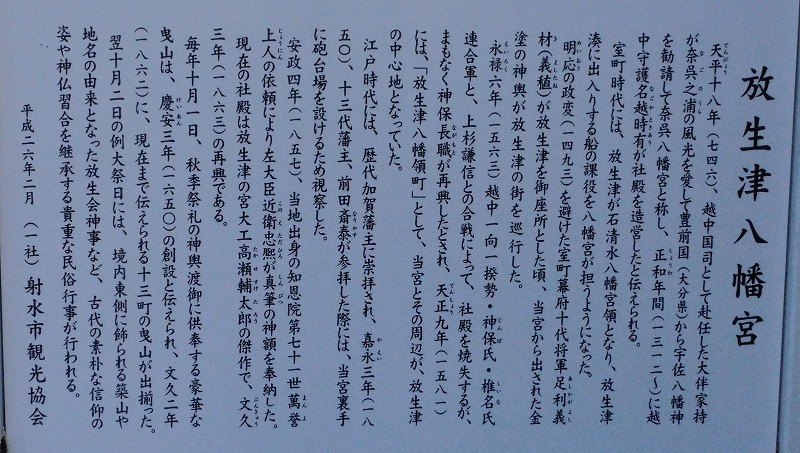 放生津八幡宮
天平十八年（七四六）、越中国司として赴任した大伴家持
が奈呉之浦の風光を愛して豊前国（大分県）から宇佐八幡神
を勧請して奈呉八幡宮と称し、正和年間（一三一二～）に越
中守護名越時有が社殿を造営したと伝えられる。
室町時代には、放生津が石清水八幡宮領となり、放生津
湊に出入りする船の課役を八幡宮が担うようになった。
明応の政変（一四九三）を避けた室町幕府十代将軍足利義
材（義稙）が放生津を御座所とした頃、当宮から出された金
塗の神輿が放生津の街を巡行した。
永禄六年（一五六三）越中一向一揆勢・神保氏・椎名氏
連合軍と、上杉謙信との合戦によって、社殿を焼失するが、
まもなく神保長職が再興したとされ、天正九年（一五八一）
には、「放生津八幡領町」として、当宮とその周辺が、放生津
の中心地となっていた。
江戸時代には、歴代加賀藩主に崇拝され、嘉永三年（一八
五〇）、十三代藩主、前田斎泰が参拝した際には、当宮裏手
に砲台場を設けるため視察した。
安政四年（一八五七）、当地出身の知恩院第七十一世萬誉
上人の依頼により左大臣近衛忠熈が真筆の神額を奉納した。
現在の社殿は放生津の宮大工高瀬輔太郎の傑作で、文久
三年（一八六三）の再興である。
毎年十月一日、秋季祭礼の神輿渡御に供奉する豪華な
曳山は、慶安三年（一六五〇）の創設と伝えられ、文久二年
（一八六二）に、現在まで伝えられる十三町の曳山が出揃った。
翌十月二日の例大祭日には、境内東側に飾られる築山や
地名の由来となった放生会神事など、古代の素朴な信仰の
姿や神仏習合を継承する貴重な民俗行事が行われる。
平成二六年二月　（一社）射水市観光協会